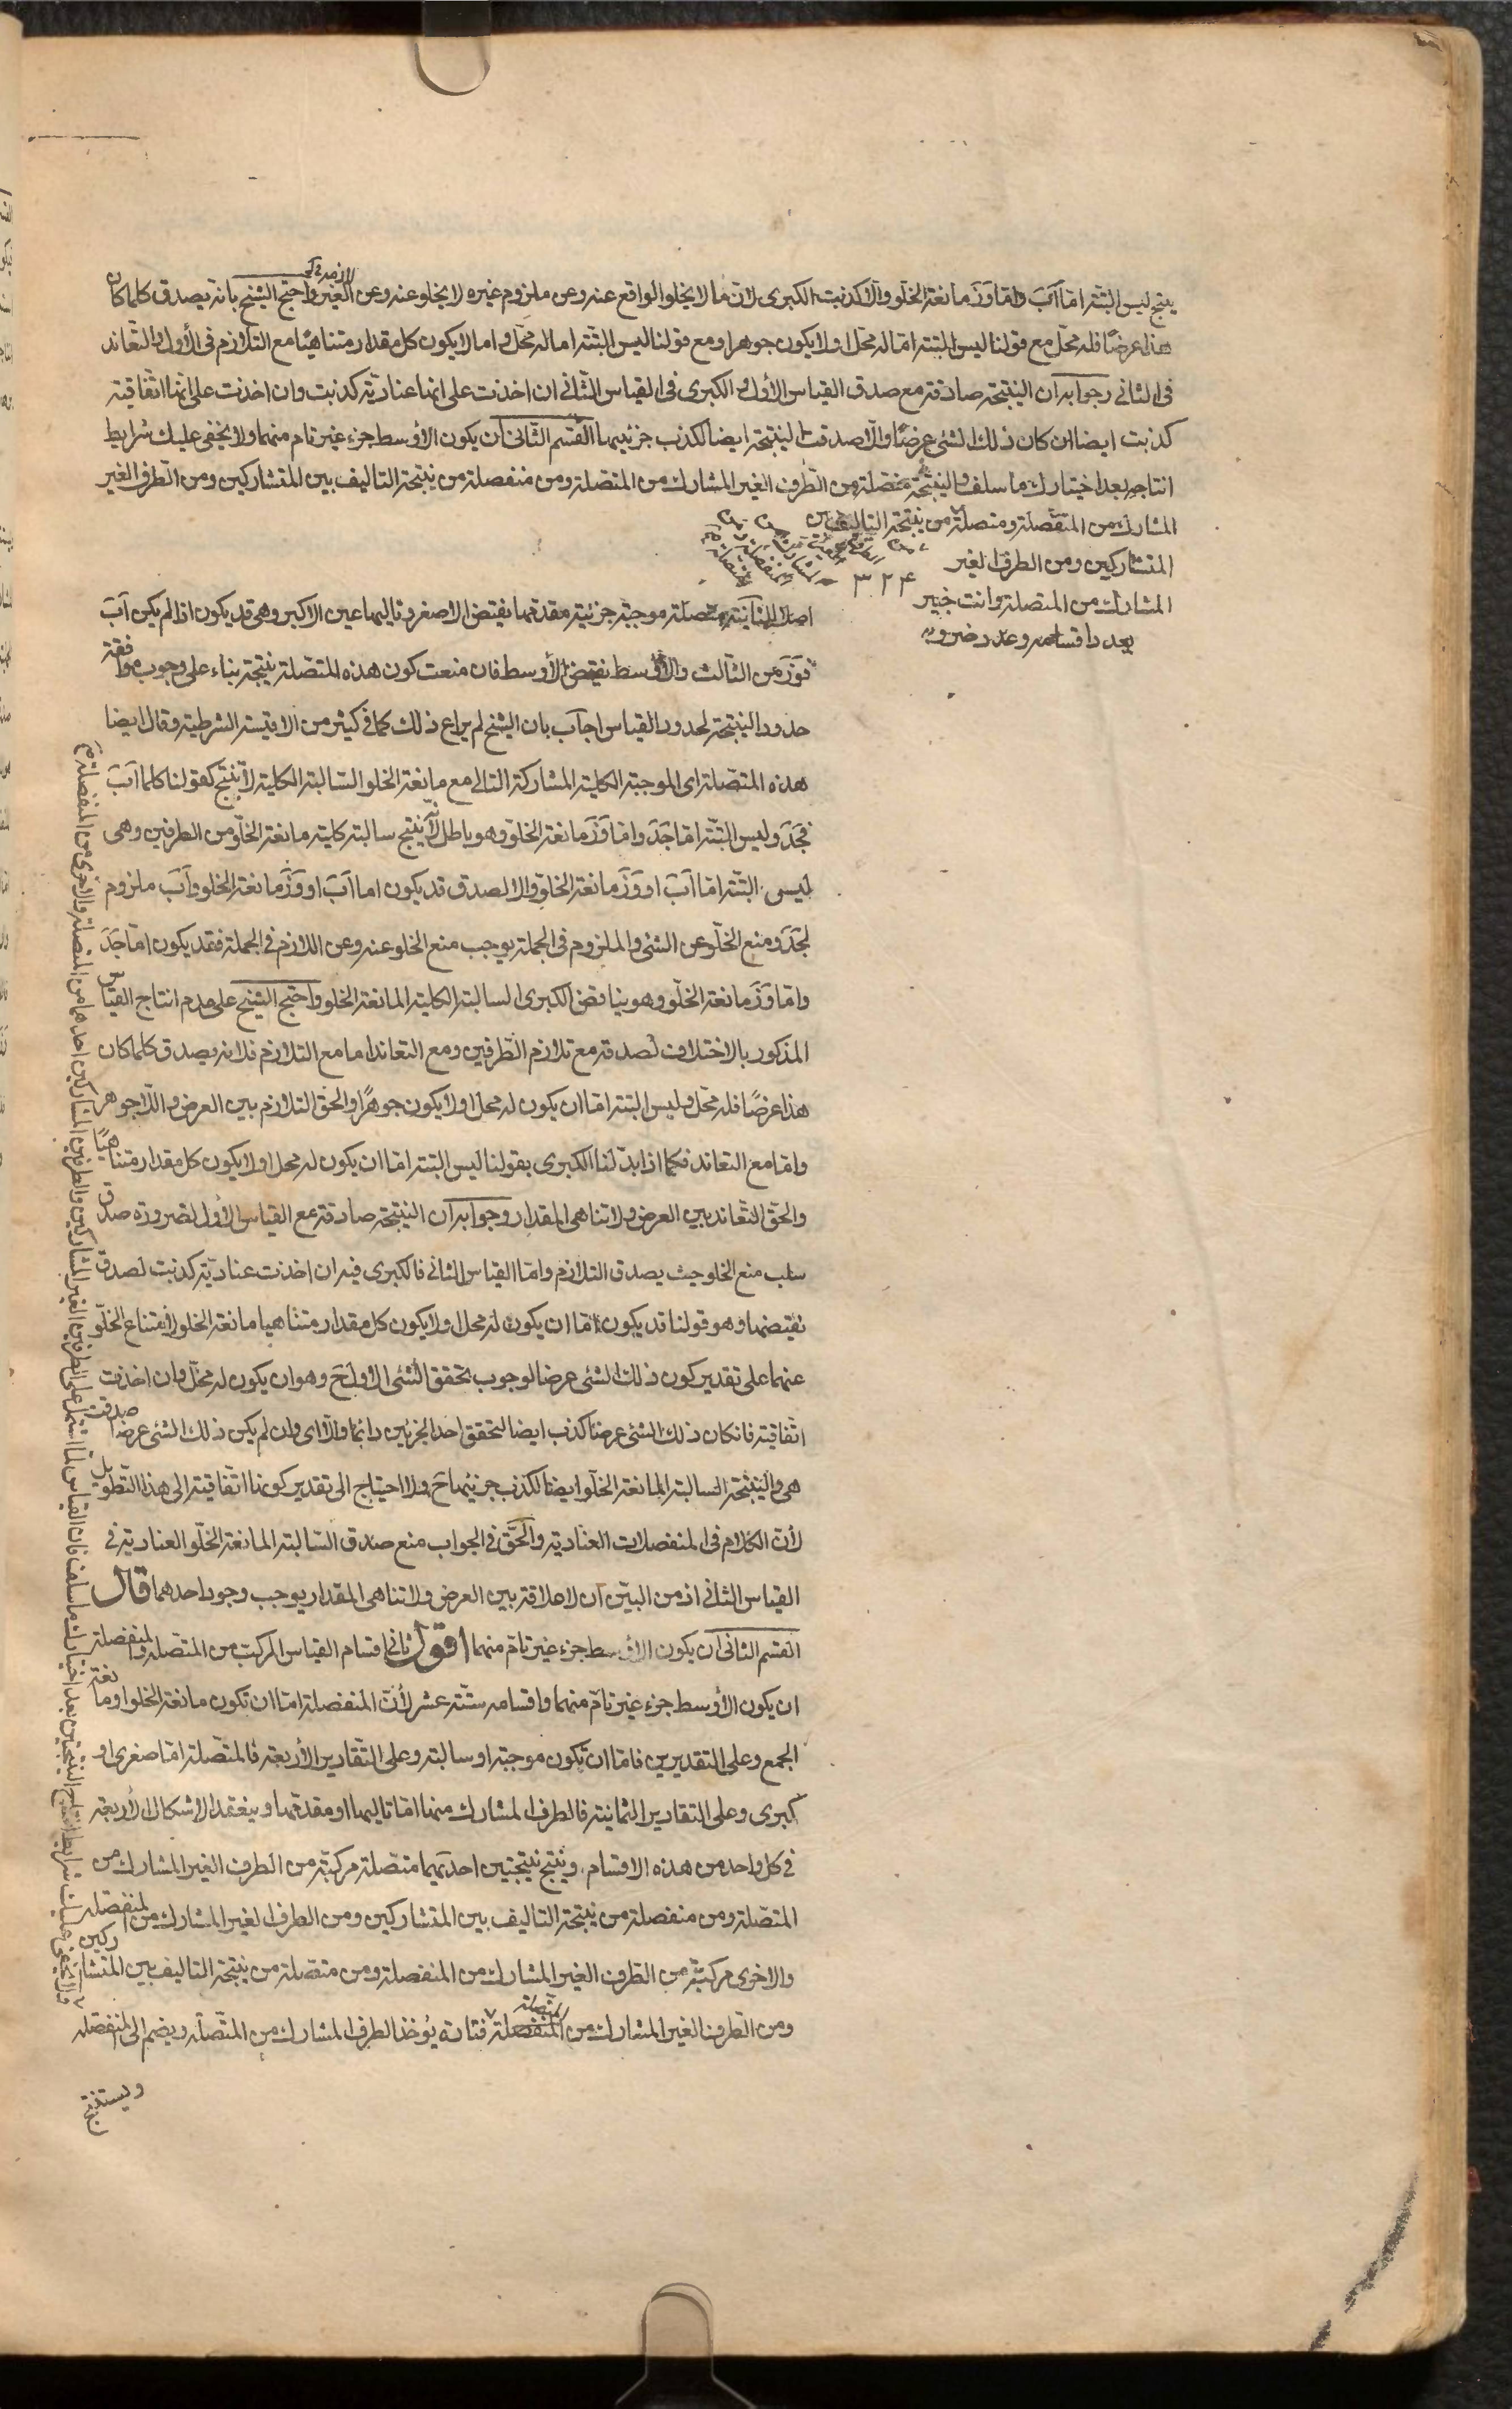 ينتج ليس البتة اما اَبَ واما وَزَ مانعة الخلو والا كذبت الكبرى لان ما لا يخلو الواقع عنه وعن ملزوم غيره لا يخلو عنه وعن الغير واحتج الشيخ بانه يصدق كلما كان
هذا عرضًا فله محل مع قولنا ليس البتة اما له محل او لا يكون جوهرا ومع قولنا ليس البتة اما له محل واما لا يكون كل مقدار متناهيًا مع التلازم فى الأول والتعاند
فى الثانى وجوابه ان النتيجة صادقة مع صدق القياس الأول والكبرى فى القياس الثانى ان اخذت على انها عنادية كذبت وان اخذت على انها اتفاقية
كذبت ايضا ان كان ذلك الشئ عرضًا والا صدقت النتيجة ايضا لكذب جزئيهما القسم الثانى ان يكون الأوسط جزء غير تام منهما ولا يخفى عليك شرايط
انتاجه بعد اختبارك ما سلف والنتيجة متصلة من الطرف الغير المشارك من المتصلة ومن منفصلة من نتيجة التاليف بين المتشاركين ومن الطرف الغير
المشارك من المنفصلة ومتصلة من نتيجة التاليف بين
المتشاركين ومن الطرف الغير
المشارك من المتصلة وانت خبير ٣٢٤
بعدد اقسامه وعدد ضروبه
متصلة موجبة جزئية مقدمها نقيض الاصغر وتاليها عين الاكبر وهى قد يكون اذا لم يكن اَبَ
فوَزَ من الثالث والأوسط نقيض الأوسط فان منعت كون هذه المتصلة نتيجة بناء على وجوب موافقة
حدود النتيجة لحدود القياس اجاب بان الشيخ لم يراع ذلك كما فى كثير من الاقيسة الشرطية وقال ايضا
هذه المتصلة اى الموجبة الكلية المشاركة التالى مع مانعة الخلو السالبة الكلية لا ينتج كقولنا كلما اَبَ
فجَدَ وليس البتة اما جَدَ واما وَزَ مانعة الخلو وهو باطل لأنه ينتج سالبة كلية مانعة الخلو من الطرفين وهى
ليس البتة اما اَبَ او وَزَ مانعة الخلو والا لصدق قد يكون اما اَبَ او وَزَ مانعة الخلو واَبَ ملزوم
لجَدَ ومنع الخلو عن الشئ والملزوم فى الجملة يوجب منع الخلو عنه وعن اللازم فى الجملة فقد يكون اما جَدَ
واما وَزَ مانعة الخلو وهو يناقض الكبرى السالبة الكلية المانعة الخلو واحتج الشيخ على عدم انتاج القياس
المذكور بالاختلاف لصدقه مع تلازم الطرفين ومع التعاند اما مع التلازم فلانه يصدق كلما كان
هذا عرضًا فله محل وليس البتة اما ان يكون له محل او لا يكون جوهرًا والحق التلازم بين العرض واللاجوهر
واما مع التعاند فكما اذا بدلنا الكبرى بقولنا ليس البتة اما ان يكون له محل او لا يكون كل مقدار متناهيًا
والحق التعاند بين العرض ولا تناهى المقدار وجوابه ان النتيجة صادقة مع القياس الأول لضرورة صدق
سلب منع الخلو حيث يصدق التلازم واما القياس الثانى فالكبرى فيه ان اخذت عنادية كذبت لصدق
نقيضها وهو قولنا قد يكون اما ان يكون له محل او لا يكون كل مقدار متناهيا مانعة الخلو لامتناع الخلو
عنهما على تقدير كون ذلك الشئ عرضا لوجوب تحقق الشئ الاول ح وهو ان يكون له محل وان اخذت
اتفاقية فان كان ذلك الشئ عرضا كذب ايضا لتحقق احد الجزئين دائما والا اى وان لم يكن ذلك الشئ عرضا صدقت
هى والنتيجة السالبة المانعة الخلو ايضا لكذب جزئيهما ح ولا احتياج الى تقدير كونها اتفاقية الى هذا التطويل
لأن الكلام فى المنفصلات العنادية والحق فى الجواب منع صدق السالبة المانعة الخلو العنادية فى
القياس الثانى اذ من البين ان لا علاقة بين العرض ولا تناهى المقدار يوجب وجود احدهما قال
القسم الثانى ان يكون الأوسط جزء غير تام منهما اقول ثانى اقسام القياس المركب من المتصلة والمنفصلة
ان يكون الأوسط جزء غير تام منهما واقسامه ستة عشر لأن المنفصلة اما ان تكون مانعة الخلو او مانعة
الجمع وعلى التقديرين فاما ان تكون موجبة او سالبة وعلى التقادير الأربعة فالمتصلة اما صغرى او
كبرى وعلى التقادير الثمانية فالطرف المشارك منها اما تاليها او مقدمها وينعقد الاشكال الأربعة
فى كل واحد من هذه الاقسام وينتج نتيجتين احديهما متصلة مركبة من الطرف الغير المشارك من
المتصلة ومن منفصلة من نتيجة التاليف بين المتشاركين ومن الطرف الغير المشارك من المنفصلة
والاخرى مركبة من الطرف الغير المشارك من المنفصلة ومن متصلة من نتيجة التاليف بين المتشاركين
ومن الطرف الغير المشارك من المتصلة فتارة يؤخذ الطرف المشارك من المتصلة ويضم الى المنفصلة
ويستنتج